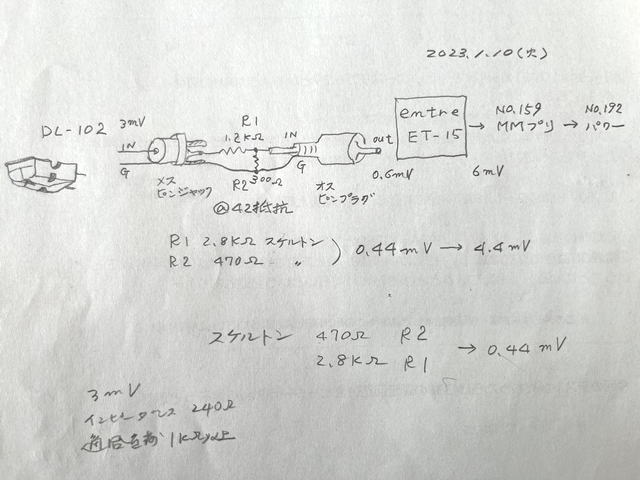 2023.1.10(火)
DL-102 3mV
IN
G
メス
ピンジャック
R1
1.2KΩ
R2 300Ω
@42抵抗
IN
G
オス
ピンプラグ
out
0.6mV
entre
ET-15
→ NO.159
MMプリ
→ NO.192
パワー
6mV
R1 2.8KΩ スケルトン
R2 470Ω 〃
) 0.44mV → 4.4mV
スケルトン 470Ω R2
2.8KΩ R1
→ 0.44mV
3mV
インピーダンス 240Ω
適合負荷 1KΩ以上